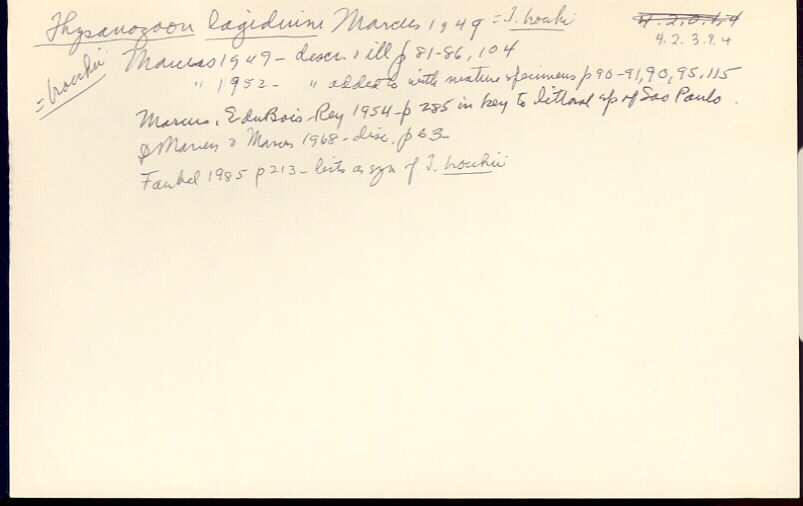 Thysanozoon lagidium Marcus 1949 = T. brocchi
4.2.0.1.4
4.2.3.9.4
= brocchii
Marcus 1949 - descr. & ill p 81-86, 104
" 1952 - " added to with mature specimens p 90-91, 90, 95, 115
Marcus, E du Bois-Rey 1954 - p 285 in key to littoral sp of Sao Paulo.
& Marcus & Marcus 1968 - disc. p 63
Faubel 1985 p 213 - lists as syn of T. brocchii